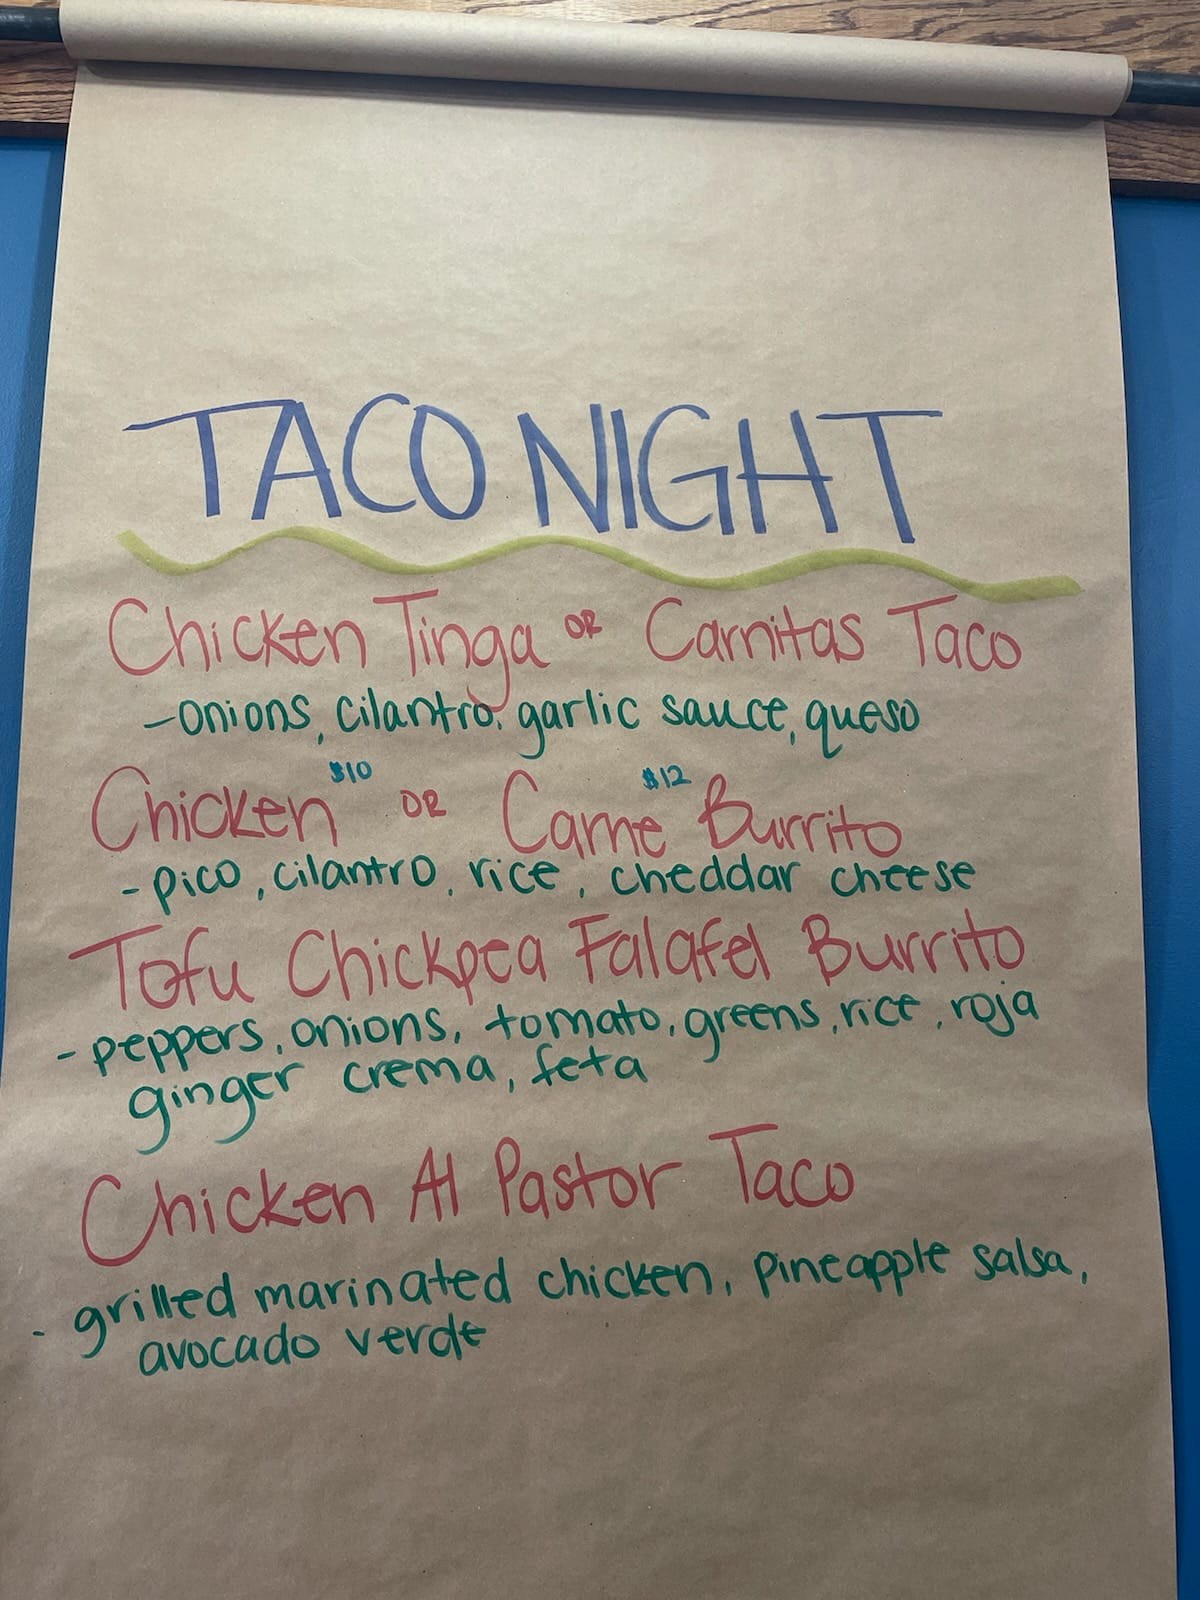 TACO NIGHT
Chicken Tinga OR Carnitas Taco
- onions, cilantro, garlic sauce, queso
Chicken $10 OR Carne $12 Burrito
- pico, cilantro, rice, cheddar cheese
Tofu Chickpea Falafel Burrito
- peppers, onions, tomato, greens, rice, roja
ginger crema, feta
Chicken Al Pastor Taco
- grilled marinated chicken, pineapple salsa,
avocado verde